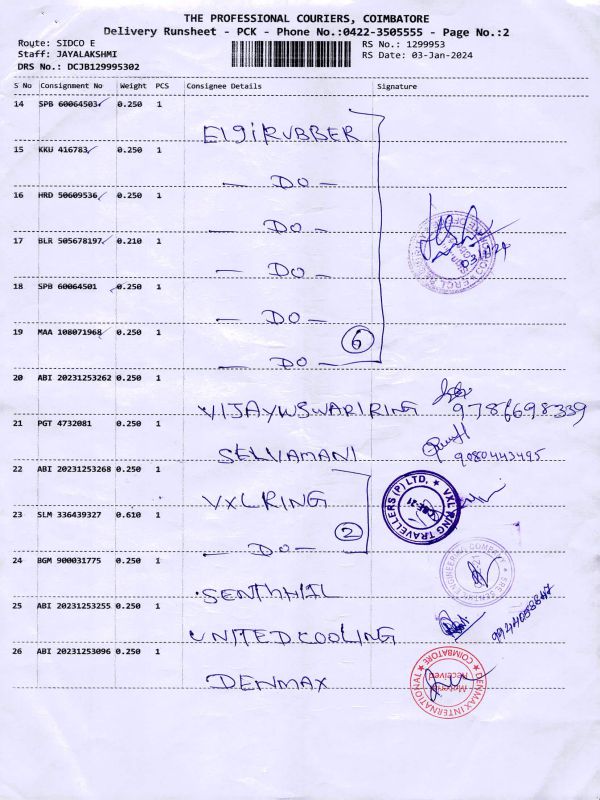 THE PROFESSIONAL COURIERS, COIMBATORE
Delivery Runsheet - PCK - Phone No.:0422-3505555 - Page No.:2
Route: SIDCO E
RS No.: 1299953
Staff: JAYALAKSHMI
RS Date: 03-Jan-2024
DRS No.: DCJB129995302
S No Consignment No Weight PCS Consignee Details Signature
14 SPB 60064503 0.250 1
Elgi RUBBER
15 KKU 416783 0.250 1
— DO —
16 HRD 50609536 0.250 1
— DO —
17 BLR 505678197 0.210 1
— DO —
03/1/24
18 SPB 60064501 0.250 1
— DO —
6
19 MAA 108071968 0.250 1
— DO —
20 ABI 20231253262 0.250 1
VIJAYWSWARIRING 9786698339
21 PGT 4732081 0.250 1
SELVAMANI 9080443495
22 ABI 20231253268 0.250 1
VXL RING
VXL RING TRAVELLERS (P) LTD.
CBE-21
23 SLM 336439327 0.610 1
2
— DO —
24 BGM 900031775 0.250 1
SENTHHIL
25 ABI 20231253255 0.250 1
UNITED COOLING
26 ABI 20231253096 0.250 1
DENMAX
DENMAX INTERNATIONAL COIMBATORE
Material Received